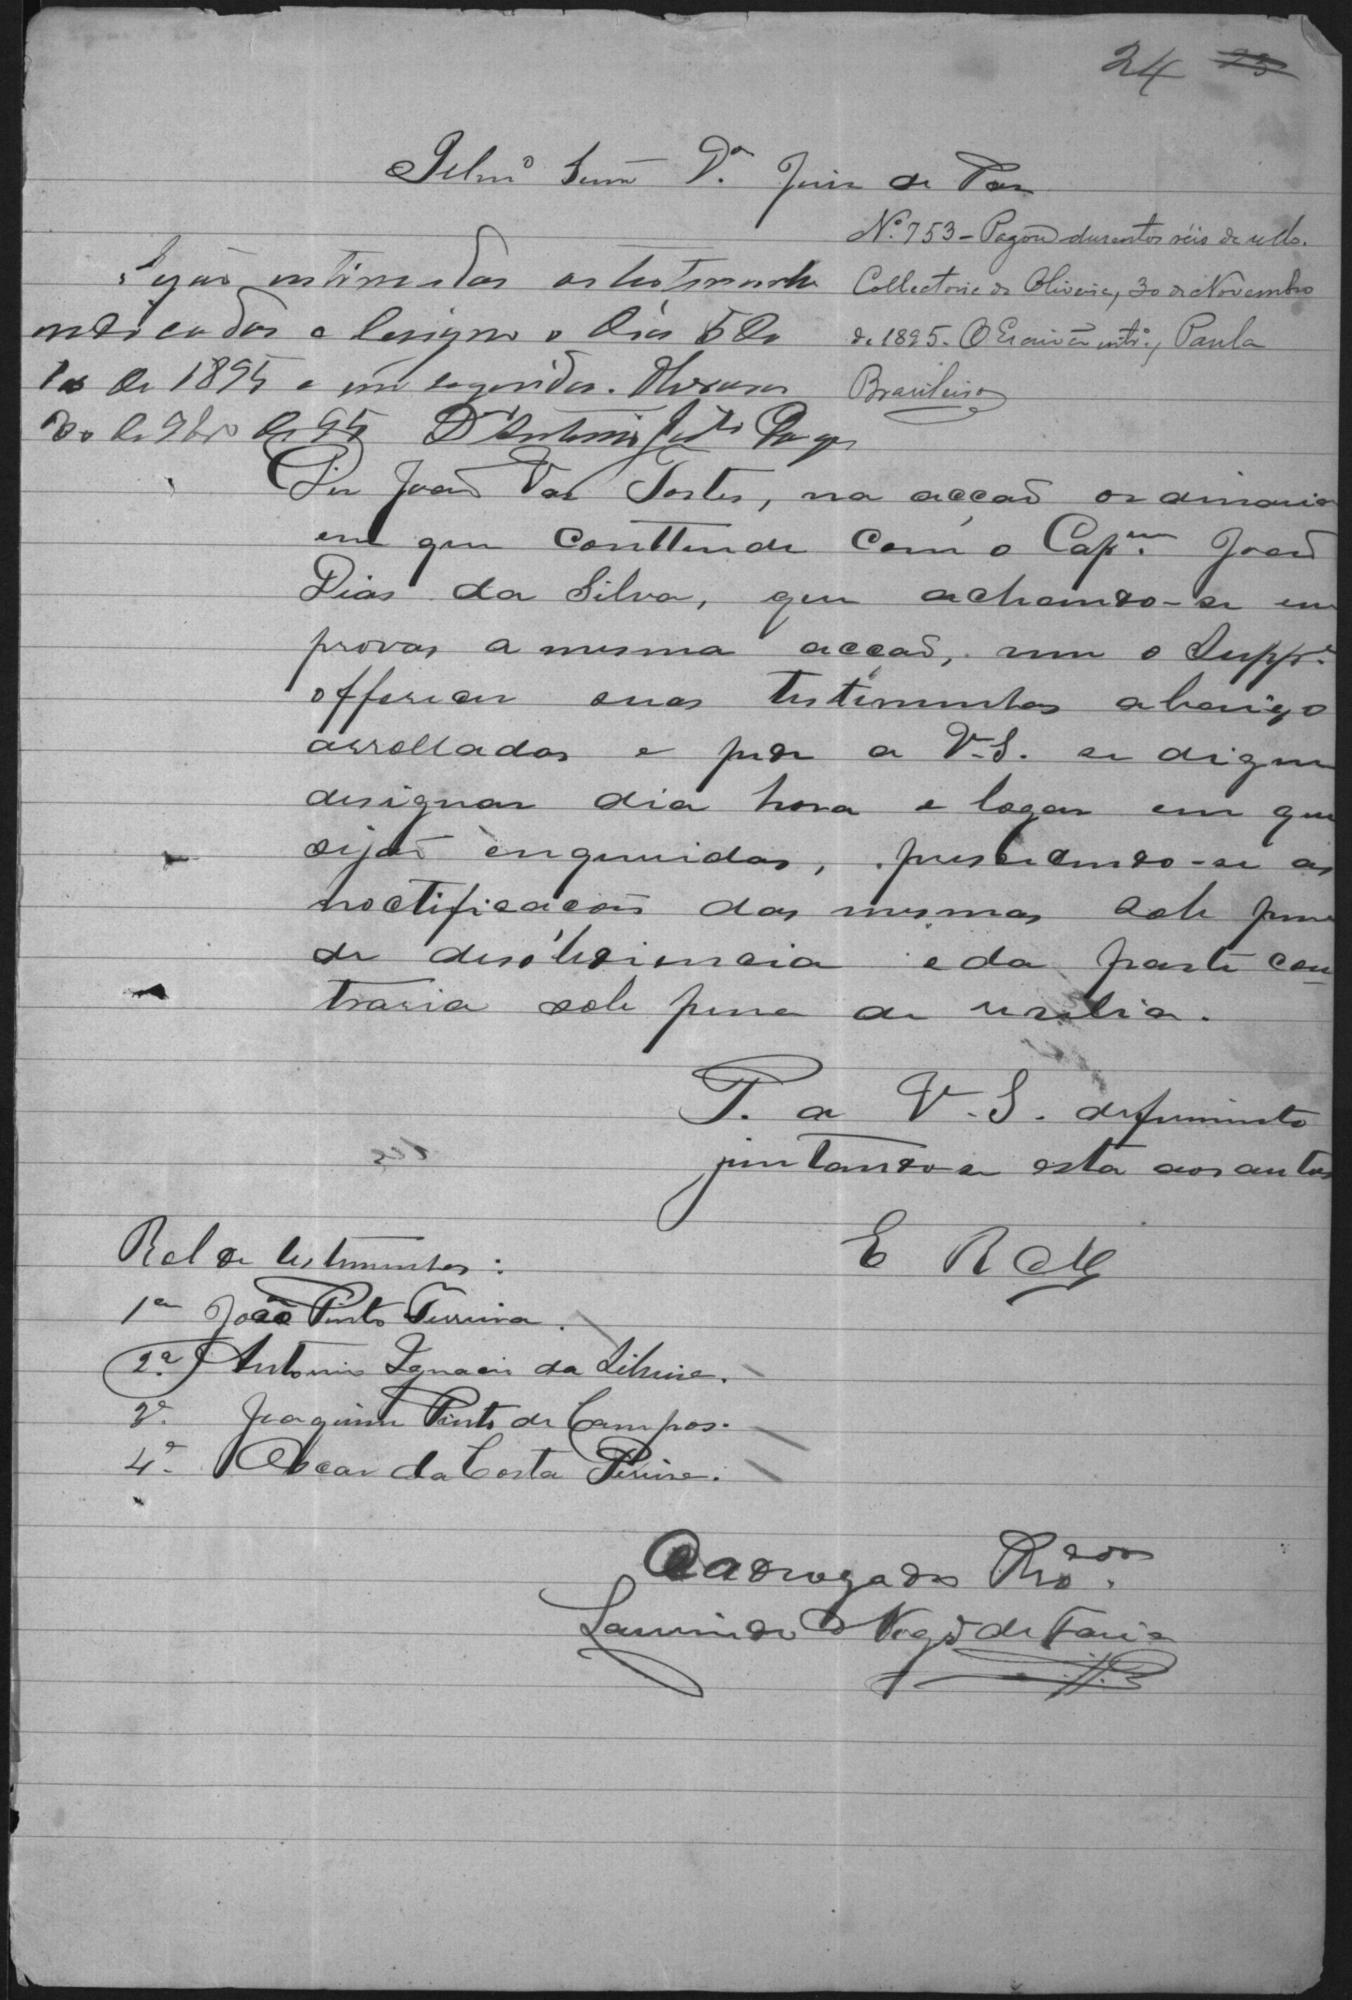 24 25
Illmo Senr Dr. Juiz de Paz
No. 753 - Pagou dusentos réis de sello.
Collectoria de Oliveira, 30 de Novembro
de 1895. O Escrivão intro, Paula
Brasileiro
Sejão intimadas as testemunhas
indicadas e designo o dia 5 do
de 1895 e
30 de 9bro de 95 Dr Antonio Justo
Diz João Vaz Tostes, na acção ordinaria
em que conttende com o Capm. João
Dias da Silva, que achando-se em
provas a mesma acção, vem o Suppe
offerecer suas testimunhas abaixo
arrolladas e pede a V.S. se digne
designar dia hora e logar em que
sejão enqueridas, presedendo-se as
noctificacões das mesmas sob pena
de desobediencia e da parte con
traria sob pena de revelia.
P. a V.S. deferimento
juntando-se esta aos autos
E R Mce
Rol de testimunhas:
1a João Pinto Ferreira.
2a Antonio Ignacio da Silveira.
3a. Joaquim Pinto de Campos.
4a. Oscar da Costa Pereira.
O advogado Prodor.
Laurindo Nogra de Faria